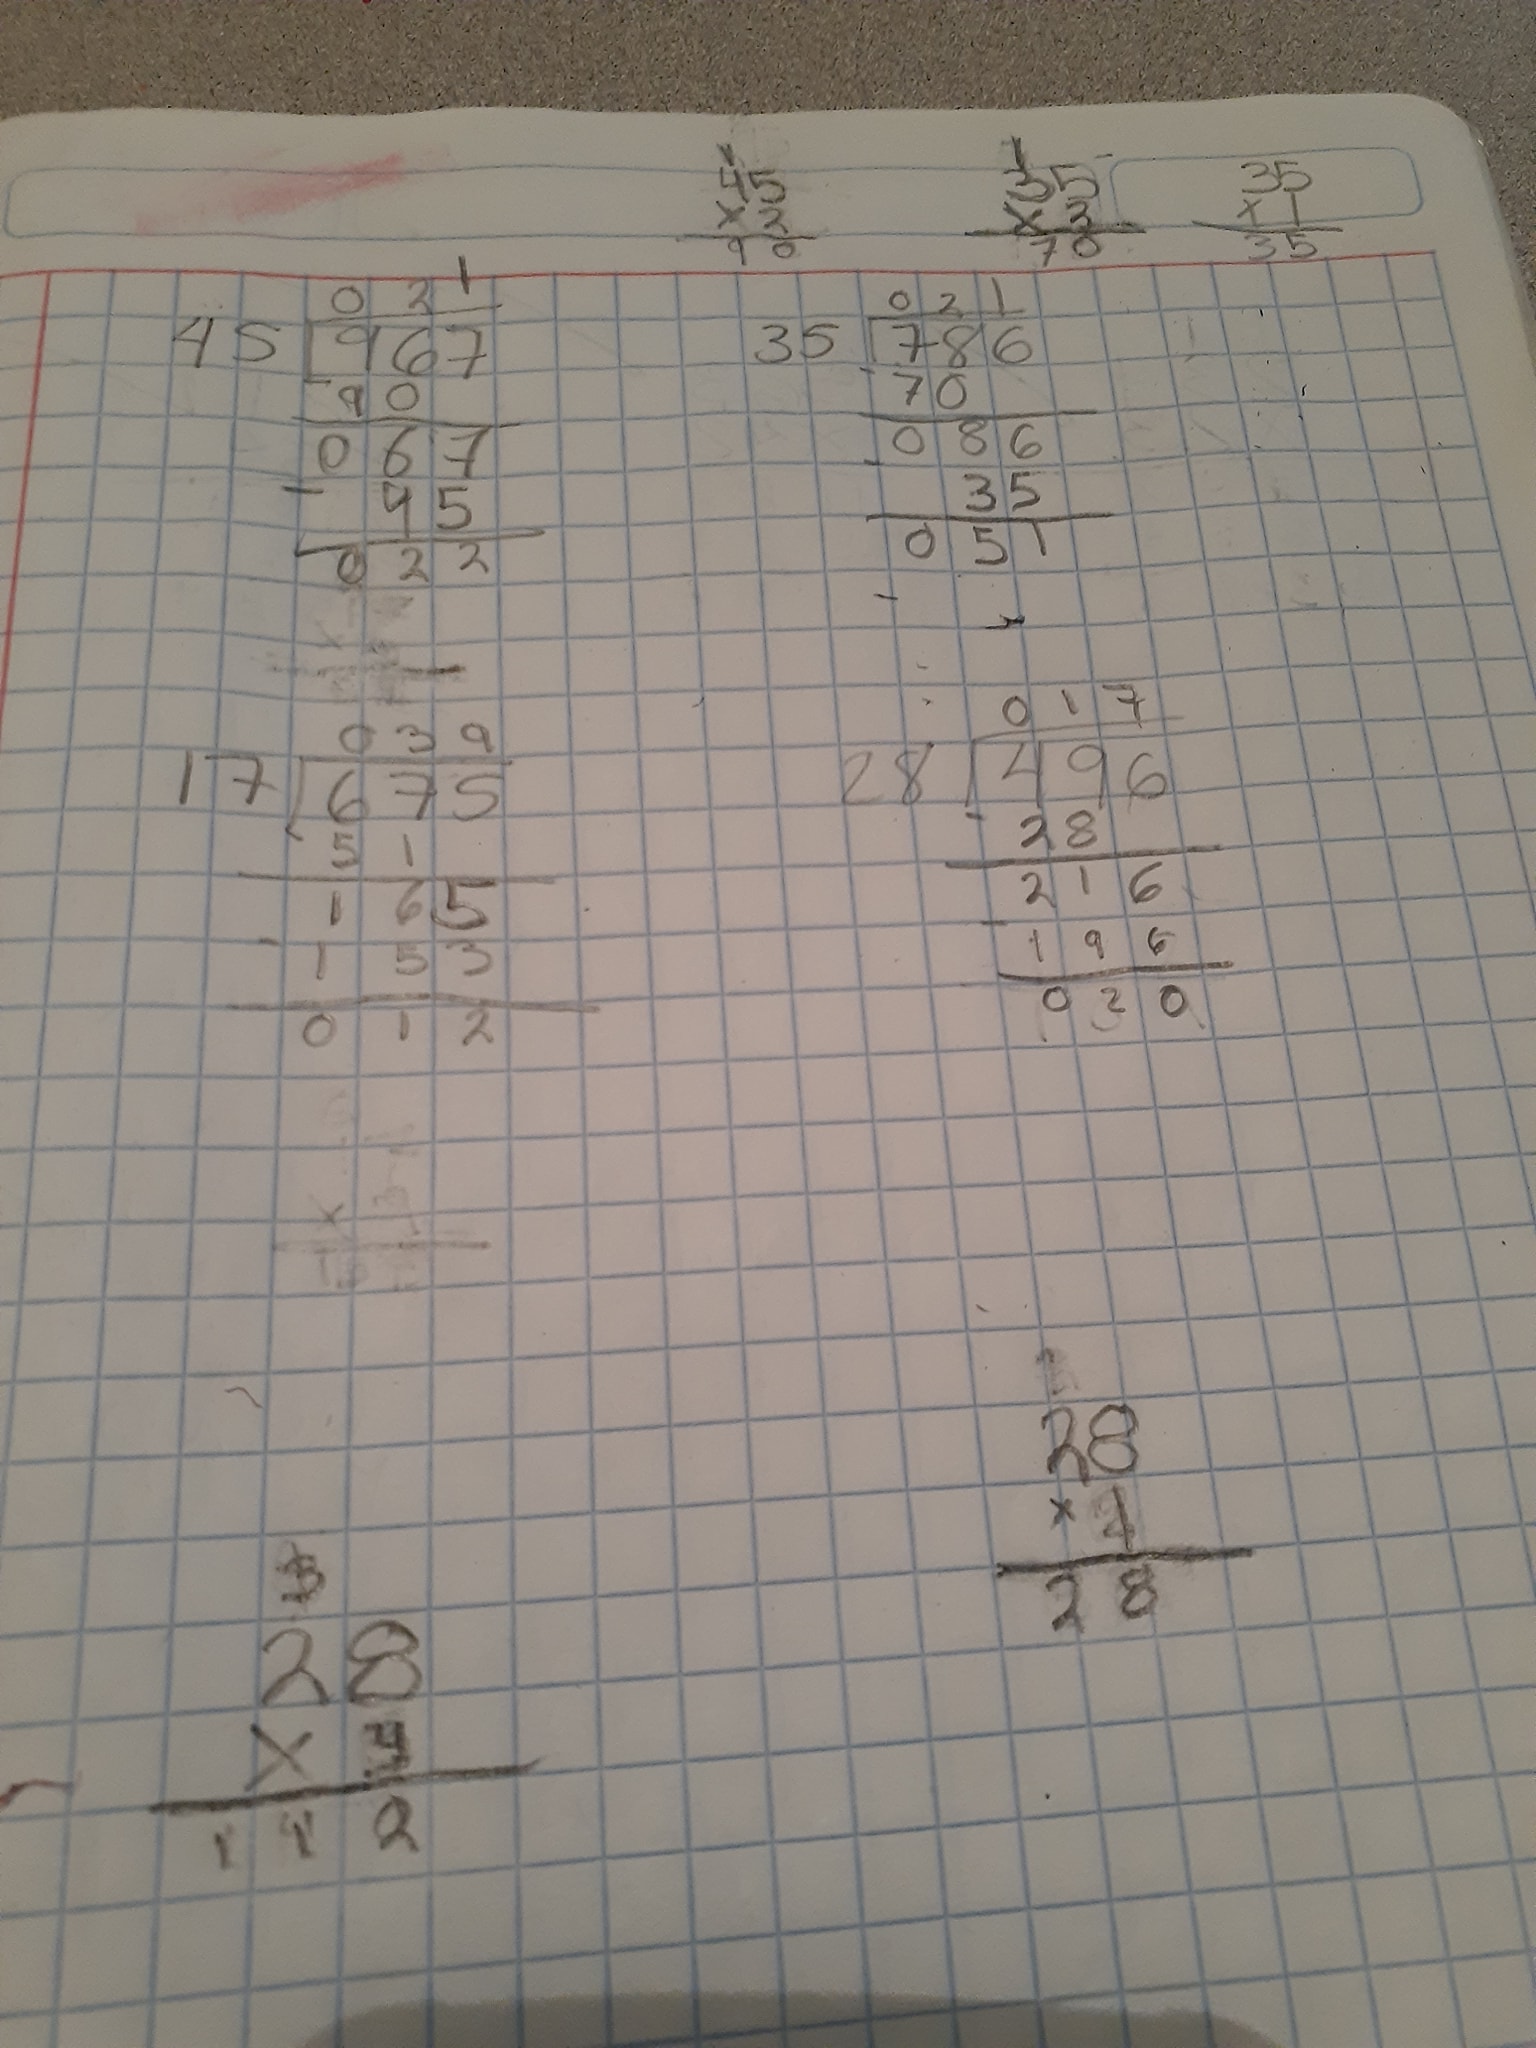 45
x 2
90
35
x 2
70
35
x 1
35
021
45 967
- 90
067
- 45
022
021
35 786
- 70
086
- 35
051
-
039
17 675
51
165
- 153
012
017
28 496
- 28
216
- 196
020
28
x 1
28
28
x
112